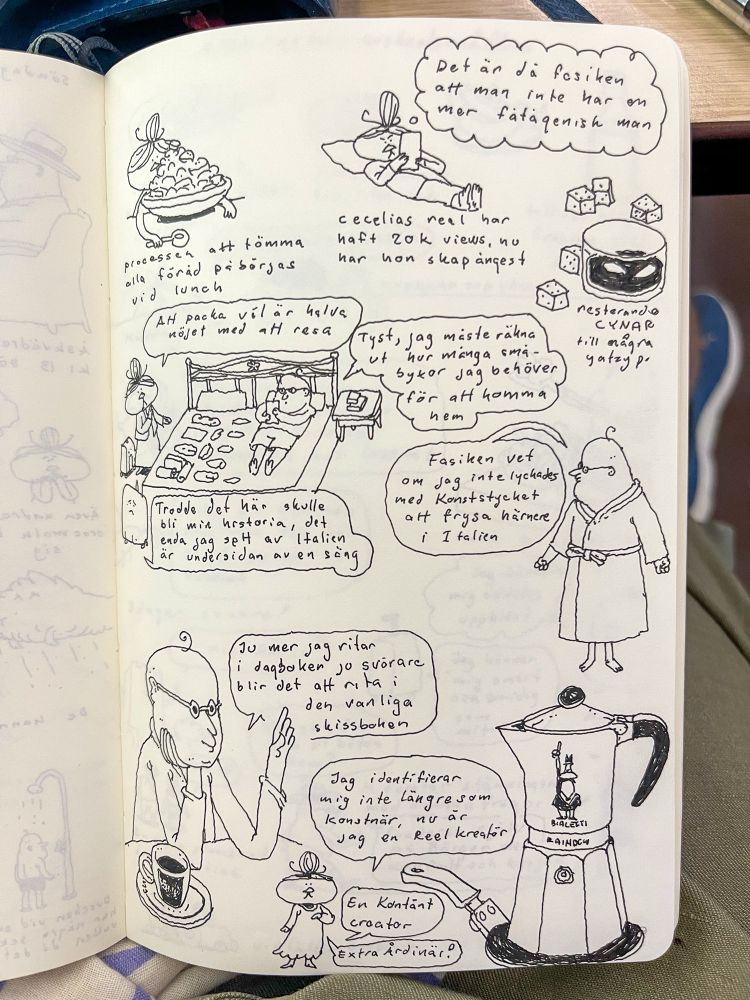 Det är då fasiken
att man inte har en
mer fåtagenisk man
processen att tömma
alla föråd påbörjas
vid lunch
cecelias real har
haft 20k views, nu
har hon skapångest
resterande
CYNAR
till några
yatzy p.
Att packa väl är halva
nöjet med att resa
Tyst, jag måste räkna
ut hur många små-
bykor jag behöver
för att komma
hem
Trodde det här skulle
bli min historia, det
enda jag sett av Italien
är undersidan av en säng
Fasiken vet
om jag inte lyckades
med Konststycket
att frysa härnere
i Italien
Ju mer jag ritar
i dagboken ju svårare
blir det att rita i
den vanliga
skissboken
Jag identifierar
mig inte längre som
Konstnär, nu är
jag en Reel kreatör
BIALETTI
RAINBOW
En Kontänt
creator
Extra Årdinär?